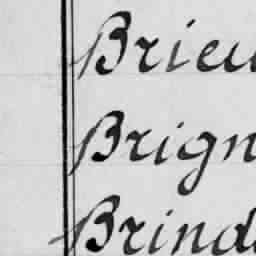 Brieu
Brign
Brind